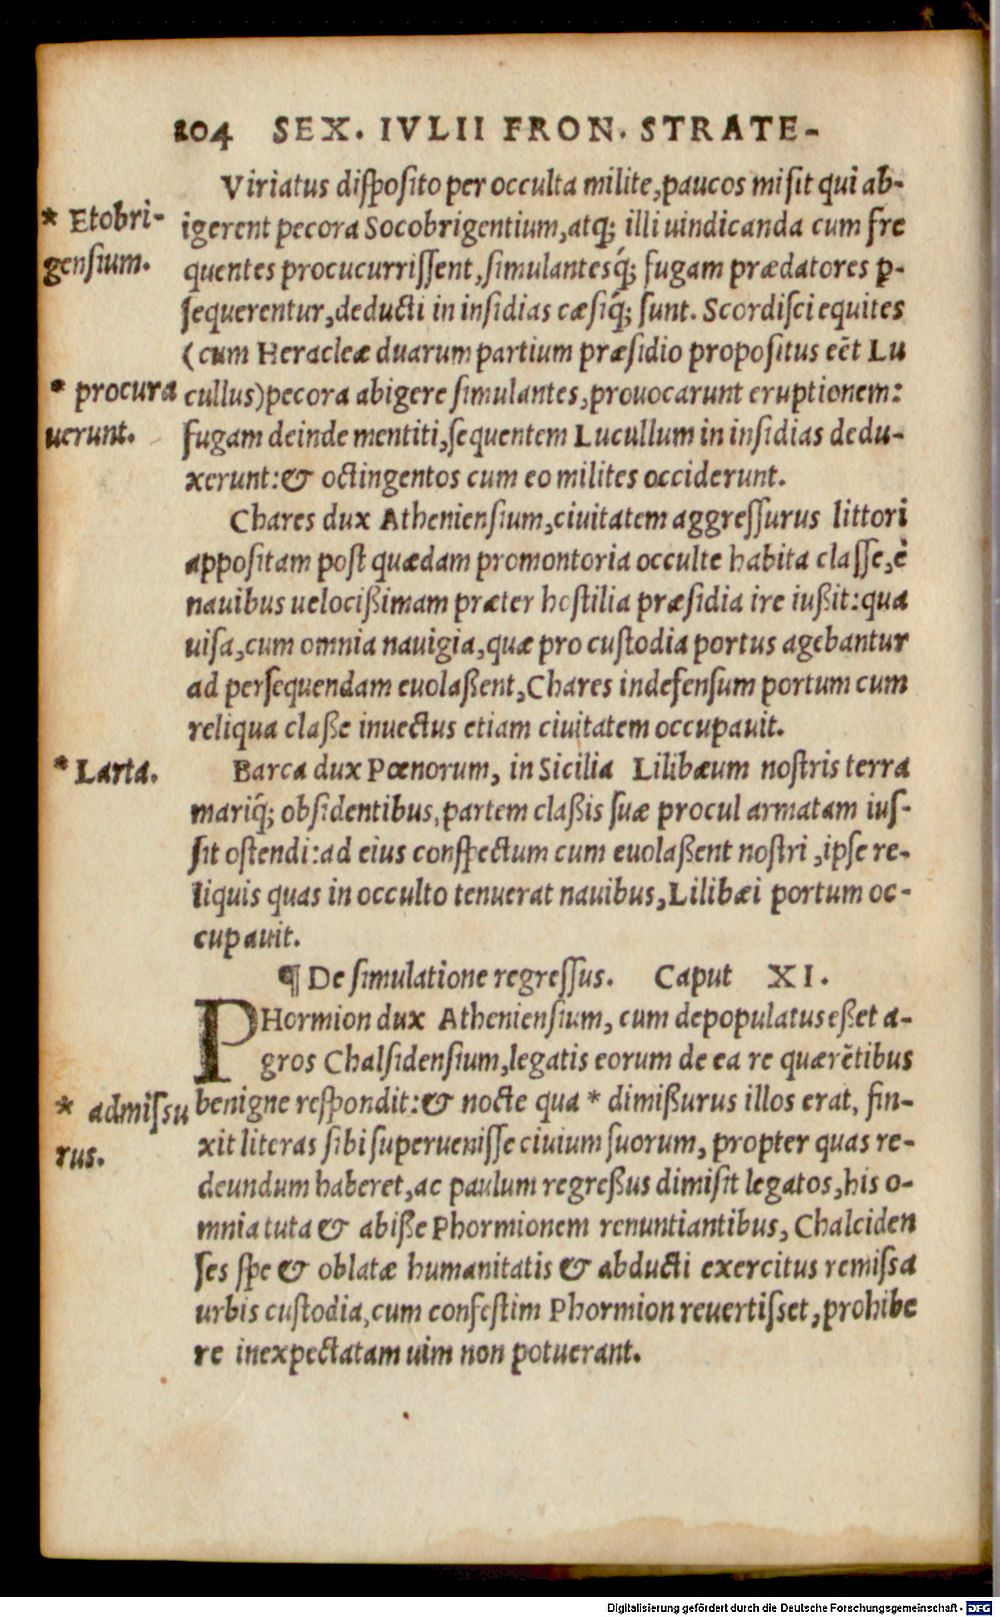 204 SEX. IVLII FRON. STRATE-
Viriatus diſpoſito per occulta milite, paucos miſit qui ab-
* Etobri-
igerent pecora Socobrigentium, atq́; illi uindicanda cum fre
genſium.
quentes procucurriſſent, ſimulantesq́; fugam prædatores p-
ſequerentur, deducti in inſidias cæſiq́; ſunt. Scordiſci equites
(cum Heracleæ duarum partium præſidio propoſitus eēt Lu
* procura
cullus) pecora abigere ſimulantes, prouocarunt eruptionem:
uerunt.
fugam deinde mentiti, ſequentem Lucullum in inſidias dedu-
xerunt: & octingentos cum eo milites occiderunt.
Chares dux Athenienſium, ciuitatem aggreſſurus littori
appoſitam poſt quædam promontoria occulte habita claſſe, è
nauibus uelocißimam præter hoſtilia præſidia ire iußit: qua
uiſa, cum omnia nauigia, quæ pro cuſtodia portus agebantur
ad perſequendam euolaßent, Chares indefenſum portum cum
reliqua claße inuectus etiam ciuitatem occupauit.
* Larta.
Barca dux Pœnorum, in Sicilia Lilibæum noſtris terra
mariq́; obſidentibus, partem claßis ſuæ procul armatam iuſ-
ſit oſtendi: ad eius conſpectum cum euolaßent noſtri, ipſe re-
liquis quas in occulto tenuerat nauibus, Lilibæi portum oc-
cupauit.
¶ De ſimulatione regreſſus. Caput XI.
PHormion dux Athenienſium, cum depopulatus eßet a-
gros Chalſidenſium, legatis eorum de ea re quærētibus
* admiſſu
benigne reſpondit: & nocte qua * dimißurus illos erat, fin-
rus.
xit literas ſibi ſuperueniſſe ciuium ſuorum, propter quas re-
deundum haberet, ac paulum regreßus dimiſit legatos, his o-
mnia tuta & abiße Phormionem renuntiantibus, Chalciden
ſes ſpe & oblatæ humanitatis & abducti exercitus remiſſa
urbis cuſtodia, cum confeſtim Phormion reuertiſſet, prohibe
re inexpectatam uim non potuerant.
Digitalisierung gefördert durch die Deutsche Forschungsgemeinschaft - DFG